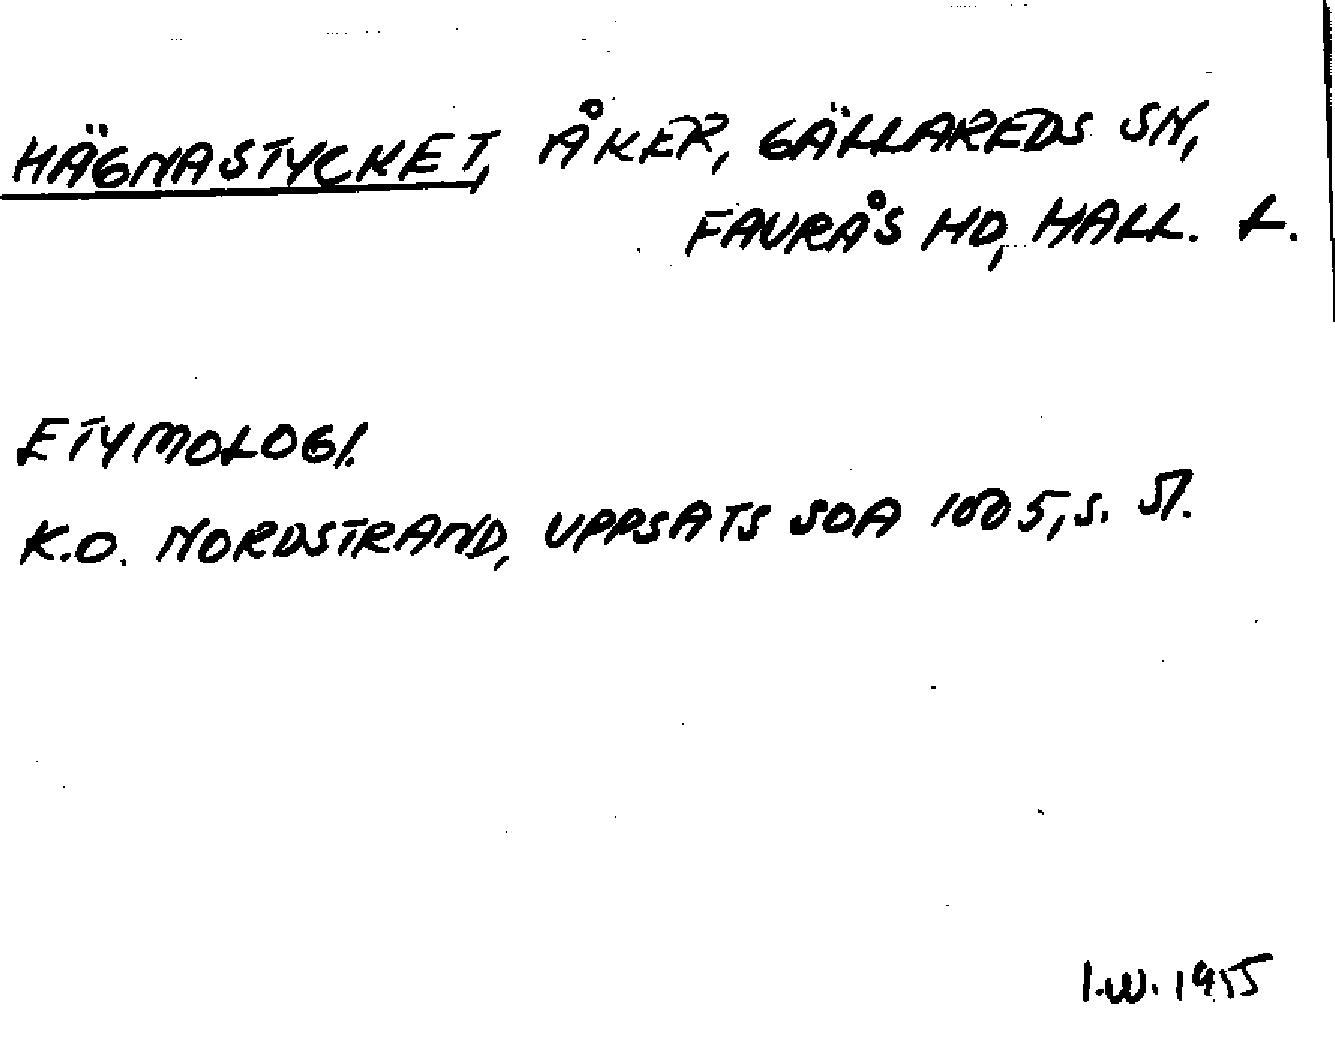 HÄGNASTYCKET, ÅKER, GÄLLAREDS SN,
FAURÅS HD, HALL. L.
ETYMOLOGI.
K.O. NORDSTRAND, UPPSATS SOA 1005, S. 57.
I.W. 1955